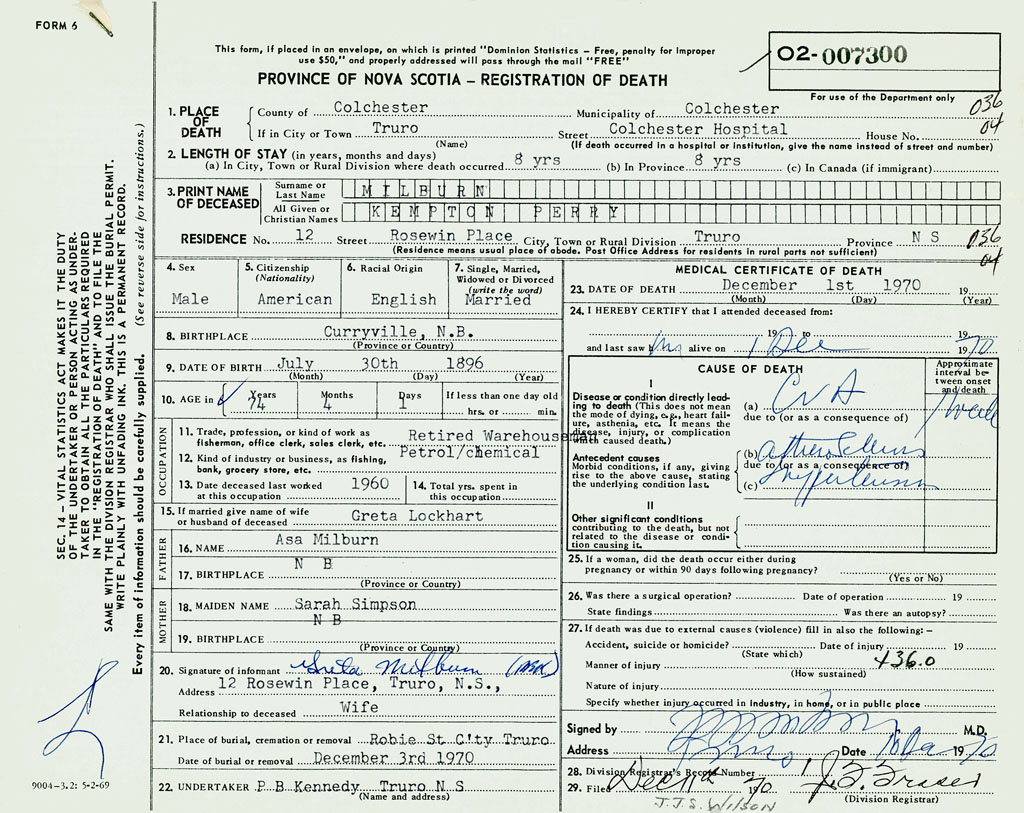 FORM 6
This form, if placed in an envelope, on which is printed "Dominion Statistics – Free, penalty for improper
use $50," and properly addressed will pass through the mail "FREE"
PROVINCE OF NOVA SCOTIA – REGISTRATION OF DEATH
02-007300
For use of the Department only
036
04
1. PLACE OF DEATH
County of Colchester Municipality of Colchester
If in City or Town Truro Street Colchester Hospital House No.
(Name) (If death occurred in a hospital or institution, give the name instead of street and number)
2. LENGTH OF STAY (in years, months and days)
(a) In City, Town or Rural Division where death occurred 8 yrs (b) In Province 8 yrs (c) In Canada (if immigrant)
3. PRINT NAME OF DECEASED
Surname or Last Name MILBURN
All Given or Christian Names KEMPTON PERRY
RESIDENCE No. 12 Street Rosewin Place City, Town or Rural Division Truro Province N S
(Residence means usual place of abode. Post Office Address for residents in rural parts not sufficient)
036
04
4. Sex
Male
5. Citizenship (Nationality)
American
6. Racial Origin
English
7. Single, Married, Widowed or Divorced (write the word)
Married
8. BIRTHPLACE Curryville, N.B.
(Province or Country)
9. DATE OF BIRTH July 30th 1896
(Month) (Day) (Year)
10. AGE in Years Months Days If less than one day old
74 4 1 hrs. or min.
OCCUPATION
11. Trade, profession, or kind of work as
fisherman, office clerk, sales clerk, etc. Retired Warehouseman
12. Kind of industry or business, as fishing,
bank, grocery store, etc. Petrol/chemical
13. Date deceased last worked
at this occupation 1960
14. Total yrs. spent in
this occupation
15. If married give name of wife
or husband of deceased Greta Lockhart
FATHER
16. NAME Asa Milburn
17. BIRTHPLACE N B
(Province or Country)
MOTHER
18. MAIDEN NAME Sarah Simpson
19. BIRTHPLACE N B
(Province or Country)
20. Signature of informant Greta Milburn
Address 12 Rosewin Place, Truro, N.S.,
Relationship to deceased Wife
21. Place of burial, cremation or removal Robie St C'ty Truro
Date of burial or removal December 3rd 1970
22. UNDERTAKER P B Kennedy Truro N S
(Name and address)
MEDICAL CERTIFICATE OF DEATH
23. DATE OF DEATH December 1st 1970 19
(Month) (Day) (Year)
24. I HEREBY CERTIFY that I attended deceased from:
19 to 19
and last saw him alive on 1 Dec 1970
CAUSE OF DEATH
Approximate interval between onset and death
I
Disease or condition directly leading
to death (This does not mean
the mode of dying, e.g., heart failure,
asthenia, etc. It means the
disease, injury, or complication
which caused death.)
(a) CVA 1 week
due to (or as a consequence of)
Antecedent causes
Morbid conditions, if any, giving
rise to the above cause, stating
the underlying condition last.
(b)
due to (or as a consequence of)
(c)
II
Other significant conditions
contributing to the death, but not
related to the disease or condition
causing it.
25. If a woman, did the death occur either during
pregnancy or within 90 days following pregnancy?
(Yes or No)
26. Was there a surgical operation? Date of operation 19
State findings Was there an autopsy?
27. If death was due to external causes (violence) fill in also the following: –
Accident, suicide or homicide? Date of injury 19
(State which)
436.0
Manner of injury
(How sustained)
Nature of injury
Specify whether injury occurred in industry, in home, or in public place
Signed by M.D.
Address Truro Date 10 Dec 1970
28. Division Registrar's Record Number
29. Filed Dec 11th 70 J. F. Fraser
(Division Registrar)
J.J.S. WILSON
SEC. 14 – VITAL STATISTICS ACT MAKES IT THE DUTY
OF THE UNDERTAKER OR PERSON ACTING AS UNDERTAKER
TO OBTAIN ALL THE PARTICULARS REQUIRED
IN THE "REGISTRATION OF DEATH" AND TO FILE THE
SAME WITH THE DIVISION REGISTRAR WHO SHALL ISSUE THE BURIAL PERMIT.
WRITE PLAINLY WITH UNFADING INK. THIS IS A PERMANENT RECORD.
Every item of information should be carefully supplied. (See reverse side for instructions.)
9004-3.2: 5-2-69